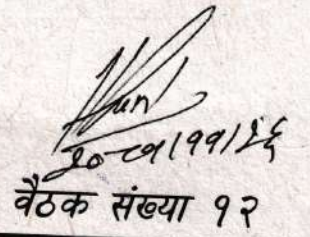 २०७९।११।२६
वैठक संख्या १२